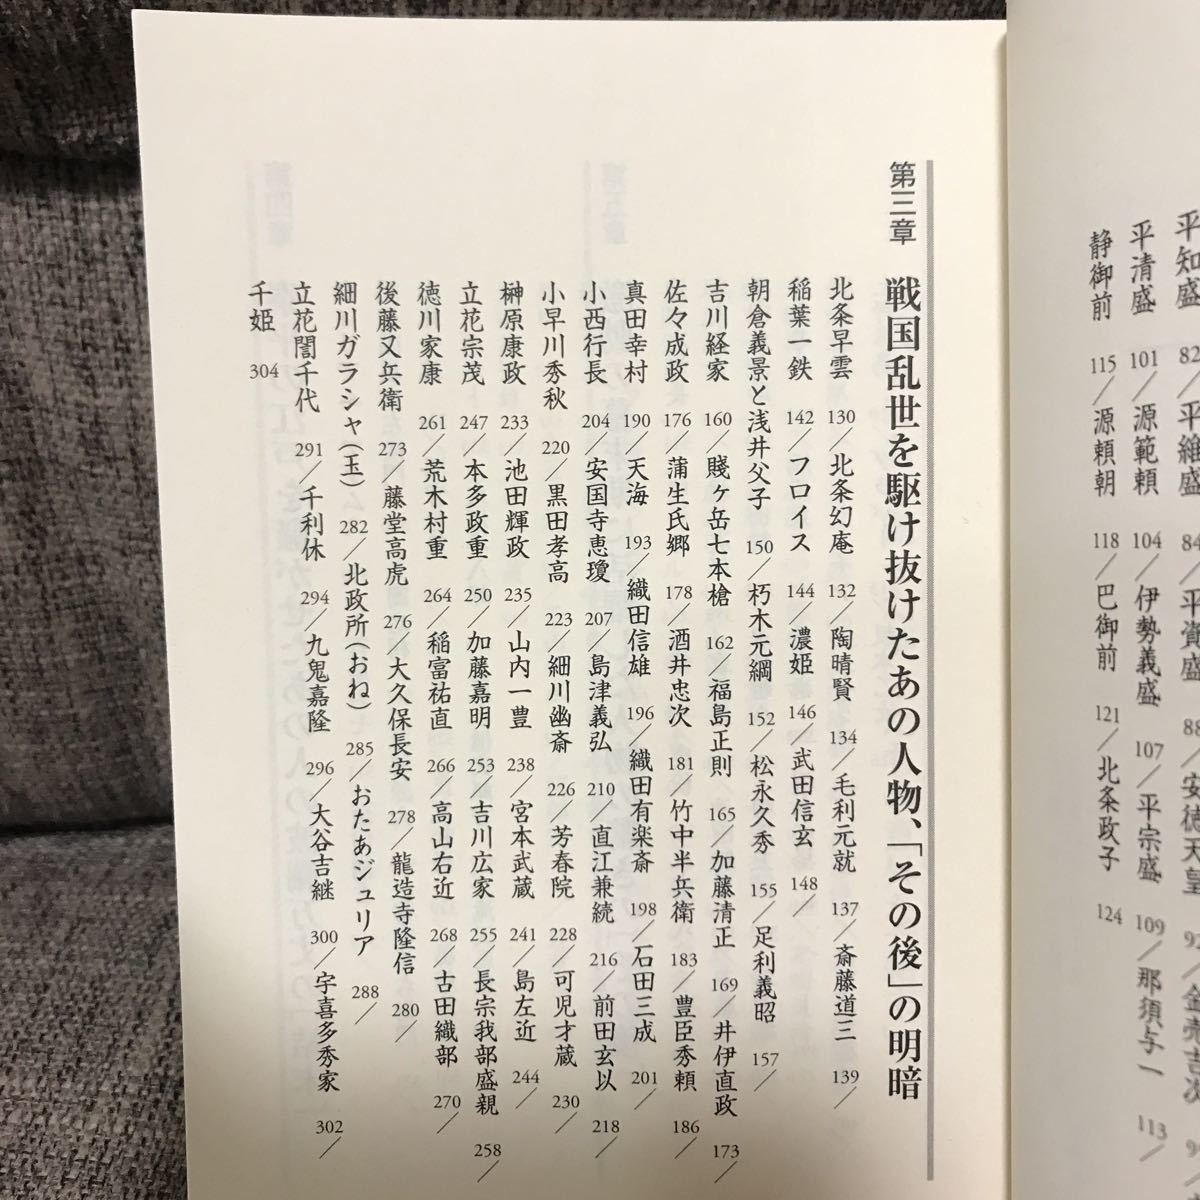 平知盛 82／平維盛 84／平資盛 88／安徳天皇 92／金売吉次
平清盛 101／源範頼 104／伊勢義盛 107／平宗盛 109／那須与一 113／
静御前 115／源頼朝 118／巴御前 121／北条政子 124
第三章 戦国乱世を駆け抜けたあの人物、「その後」の明暗
北条早雲 130／北条幻庵 132／陶晴賢 134／毛利元就 137／斎藤道三 139／
稲葉一鉄 142／フロイス 144／濃姫 146／武田信玄 148／
朝倉義景と浅井父子 150／朽木元綱 152／松永久秀 155／足利義昭 157／
吉川経家 160／賤ヶ岳七本槍 162／福島正則 165／加藤清正 169／井伊直政 173／
佐々成政 176／蒲生氏郷 178／酒井忠次 181／竹中半兵衛 183／豊臣秀頼 186／
真田幸村 190／天海 193／織田信雄 196／織田有楽斎 198／石田三成 201／
小西行長 204／安国寺恵瓊 207／島津義弘 210／直江兼続 216／前田玄以 218／
小早川秀秋 220／黒田孝高 223／細川幽斎 226／芳春院 228／可児才蔵 230／
榊原康政 233／池田輝政 235／山内一豊 238／宮本武蔵 241／島左近 244／
立花宗茂 247／本多政重 250／加藤嘉明 253／吉川広家 255／長宗我部盛親 258／
徳川家康 261／荒木村重 264／稲富祐直 266／高山右近 268／古田織部 270／
後藤又兵衛 273／藤堂高虎 276／大久保長安 278／龍造寺隆信 280／
細川ガラシャ（玉） 282／北政所（おね） 285／おたあジュリア 288／
立花誾千代 291／千利休 294／九鬼嘉隆 296／大谷吉継 300／宇喜多秀家 302／
千姫 304